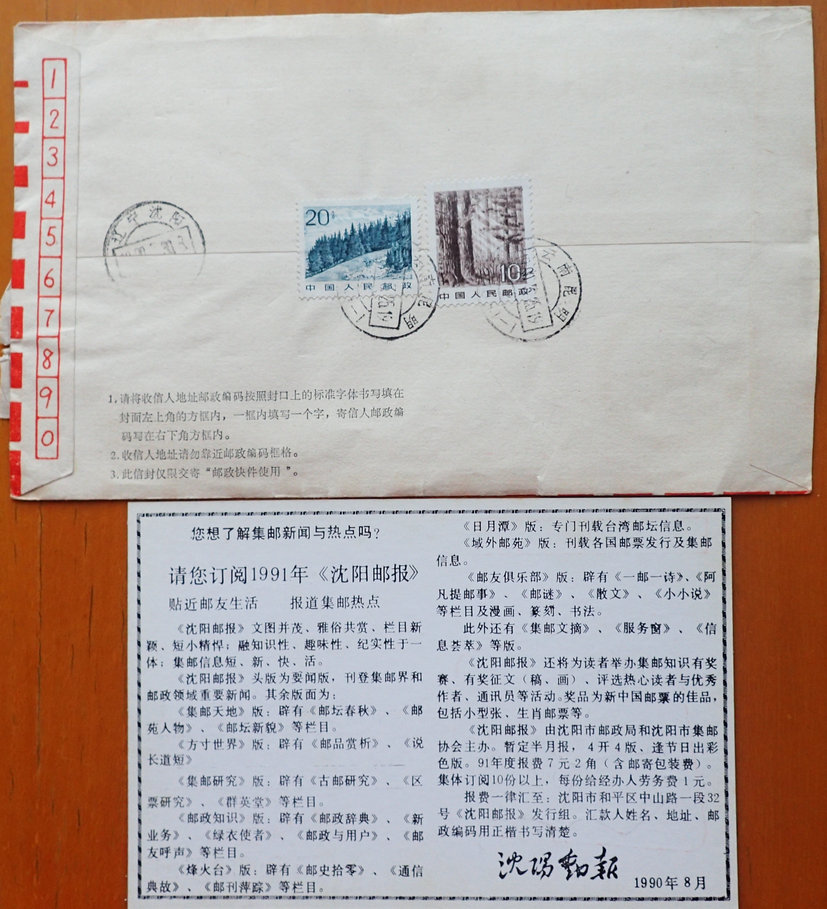 1
2
3
4
5
6
7
8
9
0
辽宁沈阳
20分
中国人民邮政
10分
中国人民邮政
云南昆明
1.请将收信人地址邮政编码按照封口上的标准字体书写填在
封面左上角的方框内，一框内填写一个字，寄信人邮政编
码写在右下角方框内。
2.收信人地址请勿靠近邮政编码框格。
3.此信封仅限交寄“邮政快件使用”。
您想了解集邮新闻与热点吗？
请您订阅1991年《沈阳邮报》
贴近邮友生活 报道集邮热点
《沈阳邮报》文图并茂、雅俗共赏、栏目新
颖、短小精悍；融知识性、趣味性、纪实性于一
体；集邮信息短、新、快、活。
《沈阳邮报》头版为要闻版，刊登集邮界和
邮政领域重要新闻。其余版面为：
《集邮天地》版：辟有《邮坛春秋》、《邮
苑人物》、《邮坛新貌》等栏目。
《方寸世界》版：辟有《邮品赏析》、《说
长道短》
《集邮研究》版：辟有《古邮研究》、《区
票研究》、《群英堂》等栏目。
《邮政知识》版：辟有《邮政辞典》、《新
业务》、《绿衣使者》、《邮政与用户》、《邮
友呼声》等栏目。
《烽火台》版：辟有《邮史拾零》、《通信
典故》、《邮刊萍踪》等栏目。
《日月潭》版：专门刊载台湾邮坛信息。
《域外邮苑》版：刊载各国邮票发行及集邮
信息。
《邮友俱乐部》版：辟有《一邮一诗》、《阿
凡提邮事》、《邮谜》、《散文》、《小小说》
等栏目及漫画、篆刻、书法。
此外还有《集邮文摘》、《服务窗》、《信
息荟萃》等版。
《沈阳邮报》还将为读者举办集邮知识有奖
赛、有奖征文（稿、画）、评选热心读者与优秀
作者、通讯员等活动。奖品为新中国邮票的佳品，
包括小型张、生肖邮票等。
《沈阳邮报》由沈阳市邮政局和沈阳市集邮
协会主办。暂定半月报，4开4版、逢节日出彩
色版。91年度报费7元2角（含邮寄包装费）。
集体订阅10份以上，每份给经办人劳务费1元。
报费一律汇至：沈阳市和平区中山路一段32
号《沈阳邮报》发行组。汇款人姓名、地址、邮
政编码用正楷书写清楚。
沈阳邮报
1990年8月